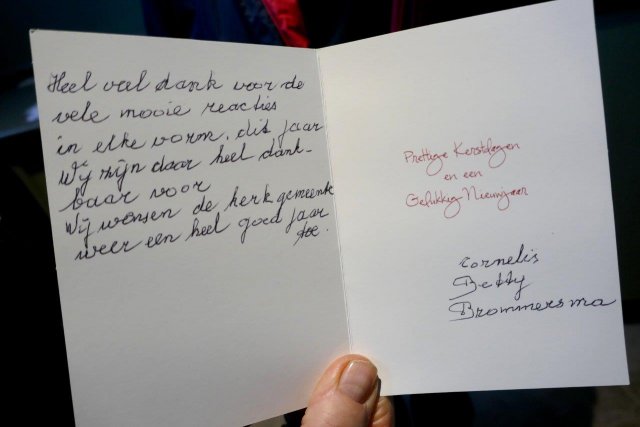 Heel veel dank voor de
vele mooie reacties
in elke vorm, dit jaar
Wij zijn daar heel dank-
baar voor
Wij wensen de kerkgemeente
weer een heel goed jaar
toe.
Prettige Kerstdagen
en een
Gelukkig Nieuwjaar
Cornelis
Betty
Brommersma